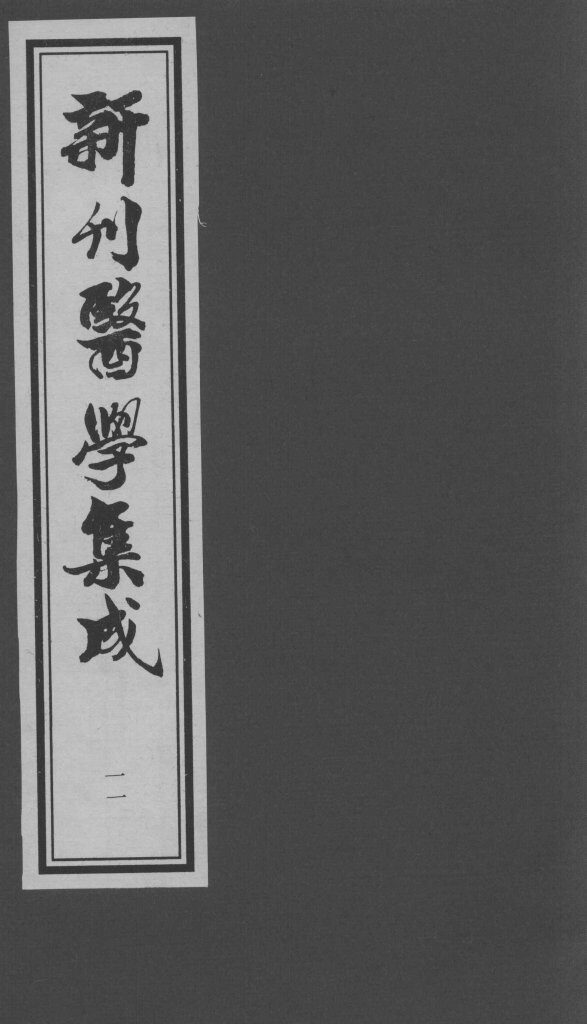 新刊醫學集成
二